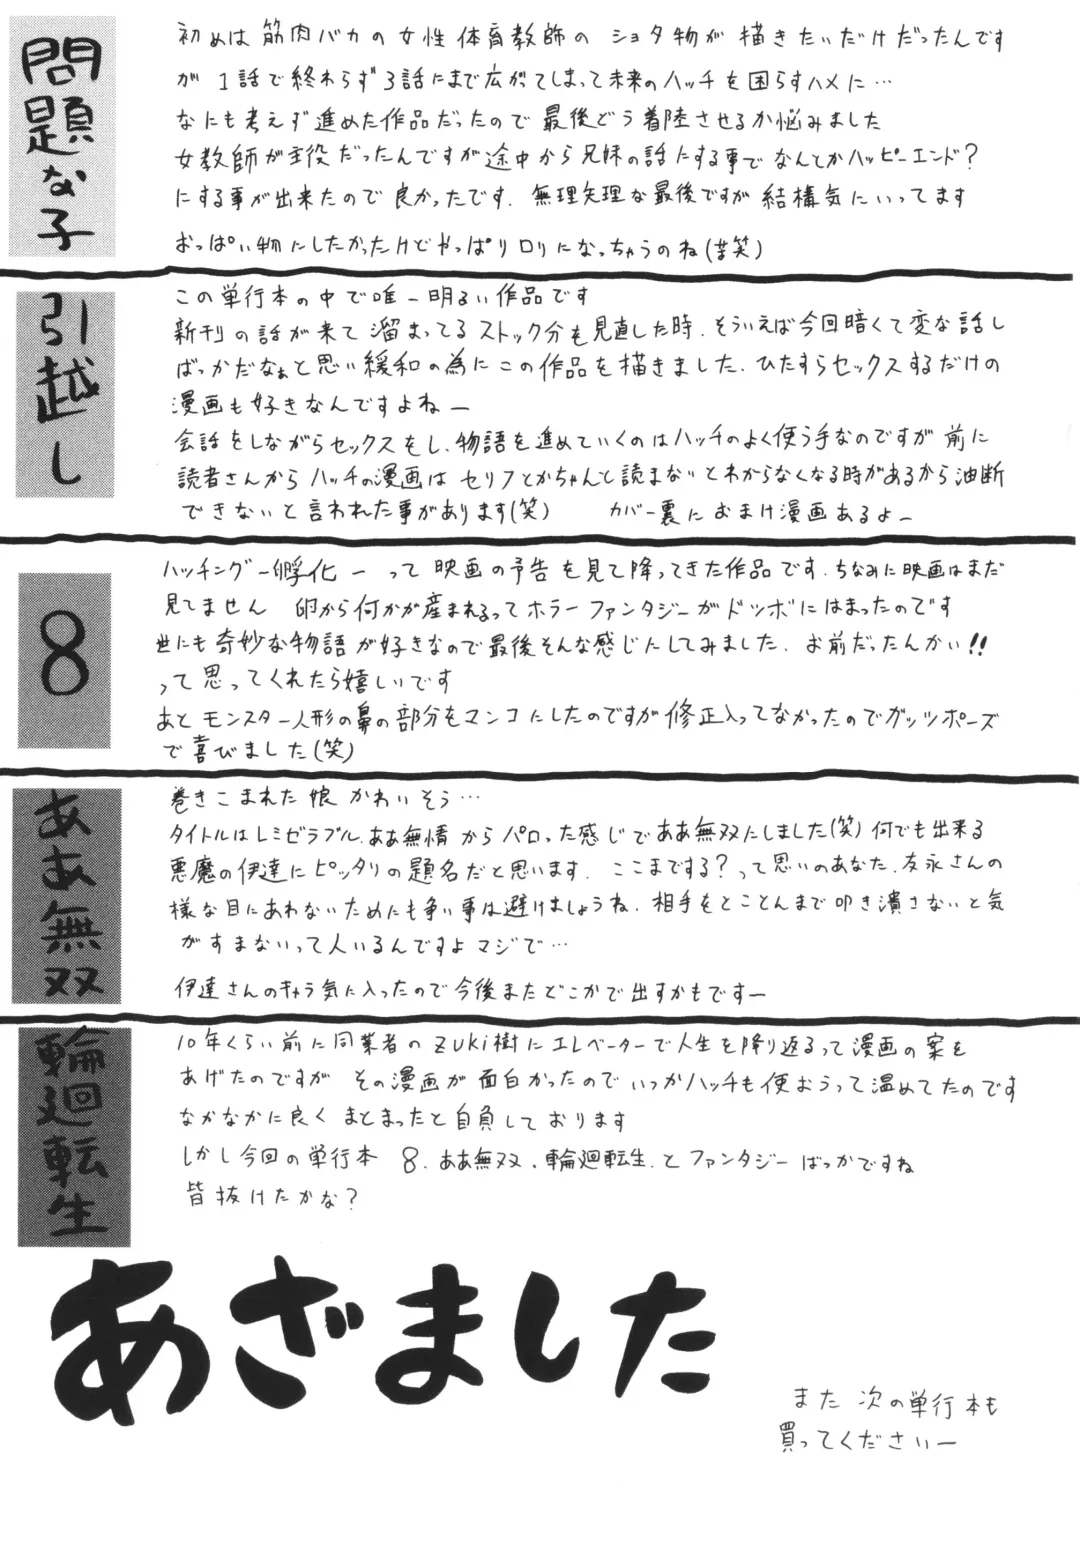 問題な子
初めは筋肉バカの女性体育教師の ショタ物が 描きたいだけだったんです
が 1話で終わらず3話にまで広がてしまって未来のハッチを困らすハメに…
なにも考えず進めた作品だったので最後どう着陸させるか悩みました
女教師が主役だったんですが途中から兄妹の話にする事でなんとかハッピーエンド?
にする事が出来たので良かったです. 無理矢理な最後ですが結構気にいってます
おっぱい物にしたかったけどやっぱりロリになっちゃうのね(苦笑)
引越し
この単行本の中で唯一明るい作品です
新刊の話が来て溜まってるストック分を見直した時、そういえば今回暗くて変な話し
ばっかだなぁと思い緩和の為にこの作品を描きました. ひたすらセックスするだけの
漫画も好きなんですよねー
会話をしながらセックスをし、物語を進めていくのはハッチのよく使う手なのですが 前に
読者さんからハッチの漫画は セリフとかちゃんと読まないとわからなくなる時があるから油断
できないと言われた事があります(笑) カバー裏におまけ漫画あるよー
8
ハッチングー孵化ー って映画の予告を見て降ってきた作品です. ちなみに映画はまだ
見てません 卵から何かが産まれるってホラーファンタジーがドツボにはまったのです
世にも奇妙な物語が好きなので最後そんな感じにしてみました. お前だったんかい!!
って思ってくれたら嬉しいです
あとモンスター人形の鼻の部分をマンコにしたのですが修正入ってなかったのでガッツポーズ
で喜びました(笑)
ああ無双
巻きこまれた娘かわいそう…
タイトルはレミゼラブル、ああ無情からパロった感じでああ無双にしました(笑) 何でも出来る
悪魔の伊達にピッタリの題名だと思います. ここまでする?って思いのあなた、友永さんの
様な目にあわないためにも争い事は避けましょうね. 相手をとことんまで叩き潰さないと気
がすまないって人いるんですよマジで…
伊達さんのキャラ気に入ったので今後またどこかで出すかもですー
輪廻転生
10年くらい前に同業者のZUKI樹にエレベーターで人生を降り返るって漫画の案を
あげたのですが その漫画が面白かったのでいつかハッチも使おうって温めてたのです
なかなかに良くまとまったと自負しております
しかし今回の単行本 8. ああ無双. 輪廻転生. とファンタジーばっかですね
皆抜けたかな?
あざました
また次の単行本も
買ってくださいー